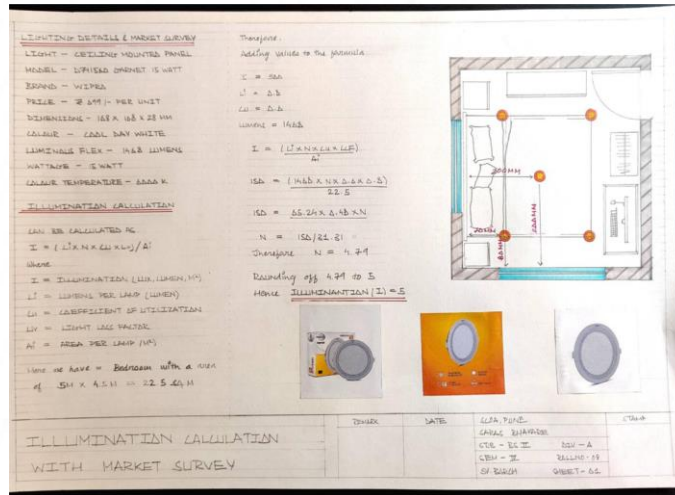 LIGHTING DETAILS & MARKET SURVEY
LIGHT - CEILING MOUNTED PANEL
MODEL - GARNET 15 WATT
BRAND - WIPRO
PRICE - ₹ 699 /- PER UNIT
DIMENSIONS - 168 X 168 X 28 MM
COLOUR - COOL DAY WHITE
LUMINOUS FLEX - 1468 LUMENS
WATTAGE - 15 WATT
COLOUR TEMPERATURE - 6000 K
ILLUMINATION CALCULATION
CAN BE CALCULATED AS
I = (Li X N X CU X LU) / Ai
Where
I = ILLUMINATION (LUX, LUMEN, M²)
Li = LUMENS PER LAMP (LUMEN)
CU = COEFFICIENT OF UTILIZATION
LU = LIGHT LOSS FACTOR
Ai = AREA PER LAMP (M²)
Here we have = Bedroom with a area
of 5M X 4.5 M = 22.5 SQ M
Therefore,
Adding values to the formula
I =
Li = 0.8
CU = 0.6
Lumens = 1468
I = (Li X N X CU X LF)
Ai
150 = (1468 X N X 0.6 X 0.8)
22.5
150 = 65.24 X 0.48 X N
N = 150/31.31
Therefore N = 4.79
Rounding off 4.79 to 5
Hence ILLUMINANTION (I) = 5
ILLLUMINATION CALCULATION
WITH MARKET SURVEY
REMARK
DATE
PUNE
DIV - A
SHEET - 02
STAMP